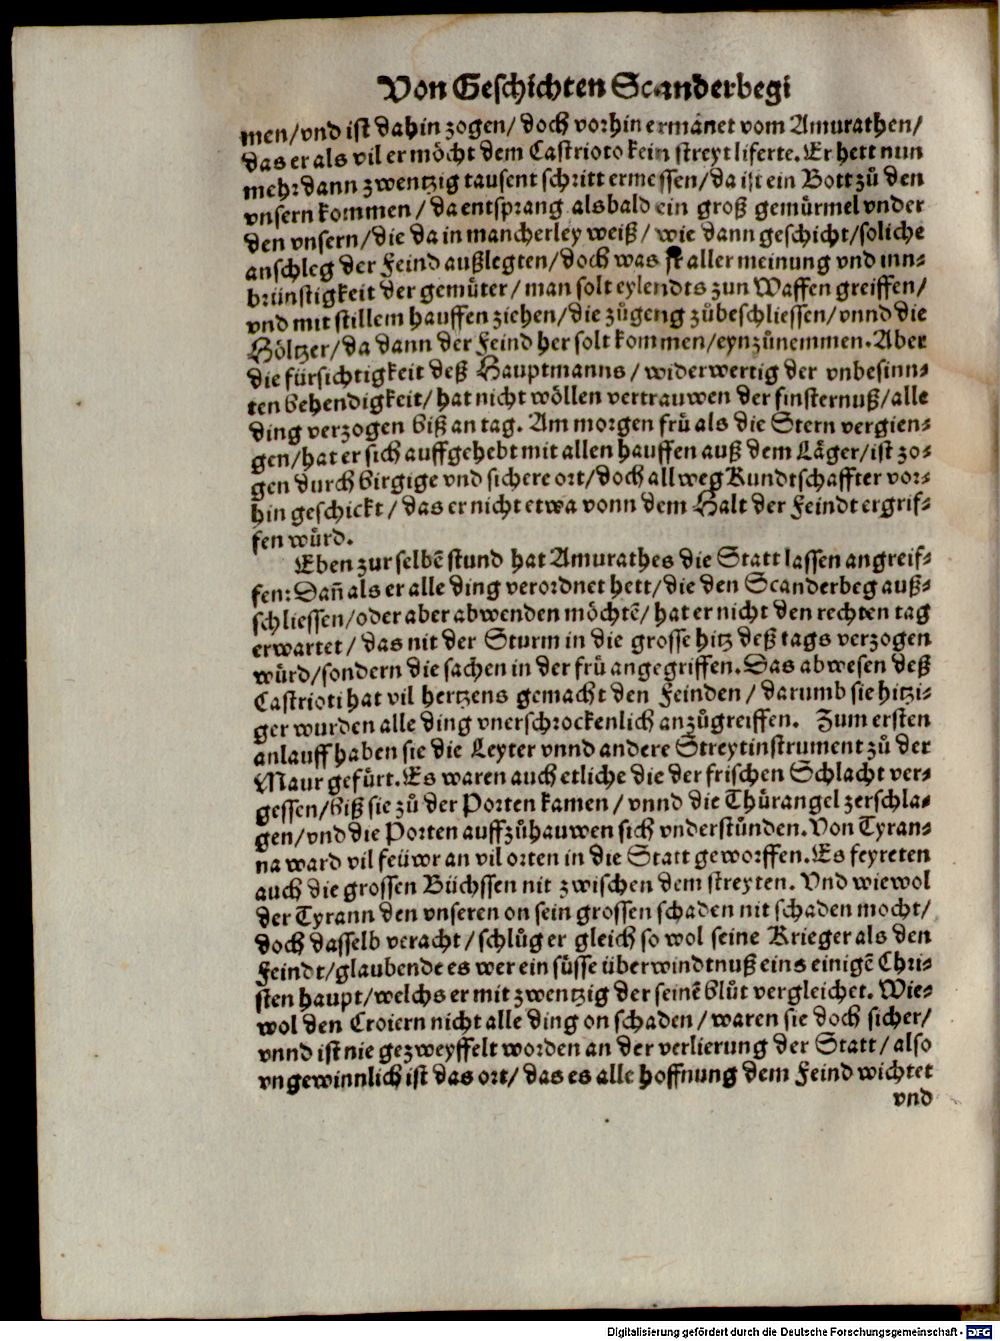 Von Geschichten Scanderbegi
men/vnd ist dahin zogen/ doch vorhin ermänet vom Amurathen/
das er als vil er möcht dem Castrioto kein streyt liferte. Er hett nun
mehr dann zwentzig tausent schritt ermessen/da ist ein Bott zů den
vnsern kommen / da entsprang alsbald ein groß gemürmel vnder
den vnsern/die da in mancherley weiß/ wie dann geschicht/soliche
anschleg der Feind außlegten/doch was aller meinung vnd inn⸗
brünstigkeit der gemüter/ man solt eylendts zun Waffen greiffen/
vnd mit stillem hauffen ziehen/die zůgeng zůbeschliessen/vnnd die
Höltzer/da dann der Feind her solt kommen/eynzůnemmen. Aber
die fürsichtigkeit deß Hauptmanns/ widerwertig der vnbesinn⸗
ten behendigkeit/hat nicht wöllen vertrauwen der finsternuß/alle
ding verzogen biß an tag. Am morgen frů als die Stern vergien⸗
gen/hat er sich auffgehebt mit allen hauffen auß dem Läger/ist zo⸗
gen durch birgige vnd sichere ort/doch allweg Kundtschaffter vor⸗
hin geschickt/das er nicht etwa vonn dem Halt der Feindt ergrif⸗
fen würd.
Eben zur selbē stund hat Amurathes die Statt lassen angreif⸗
fen: Dañ als er alle ding verordnet hett/die den Scanderbeg auß⸗
schliessen/oder aber abwenden möchtē/ hat er nicht den rechten tag
erwartet/ das nit der Sturm in die grosse hitz deß tags verzogen
würd/sondern die sachen in der frů angegriffen. Das abwesen deß
Castrioti hat vil hertzens gemacht den Feinden/ darumb sie hitzi⸗
ger wurden alle ding vnerschrockenlich anzůgreiffen. Zum ersten
anlauff haben sie die Leyter vnnd andere Streytinstrument zů der
Maur gefürt. Es waren auch etliche die der frischen Schlacht ver⸗
gessen/biß sie zů der Porten kamen/ vnnd die Thürangel zerschla⸗
gen/vnd die Porten auffzůhauwen sich vnderstůnden. Von Tyran⸗
na ward vil feüwr an vil orten in die Statt geworffen. Es feyreten
auch die grossen Büchssen nit zwischen dem streyten. Vnd wiewol
der Tyrann den vnseren on sein grossen schaden nit schaden mocht/
doch dasselb veracht/ schlůg er gleich so wol seine Krieger als den
Feindt/glaubende es wer ein süsse überwindtnuß eins einigē Chri⸗
sten haupt/welchs er mit zwentzig der seinē blůt vergleichet. Wie⸗
wol den Croiern nicht alle ding on schaden/ waren sie doch sicher/
vnnd ist nie gezweyffelt worden an der verlierung der Statt/ also
vngewinnlich ist das ort/ das es alle hoffnung dem Feind wichtet
vnd
Digitalisierung gefördert durch die Deutsche Forschungsgemeinschaft - DFG